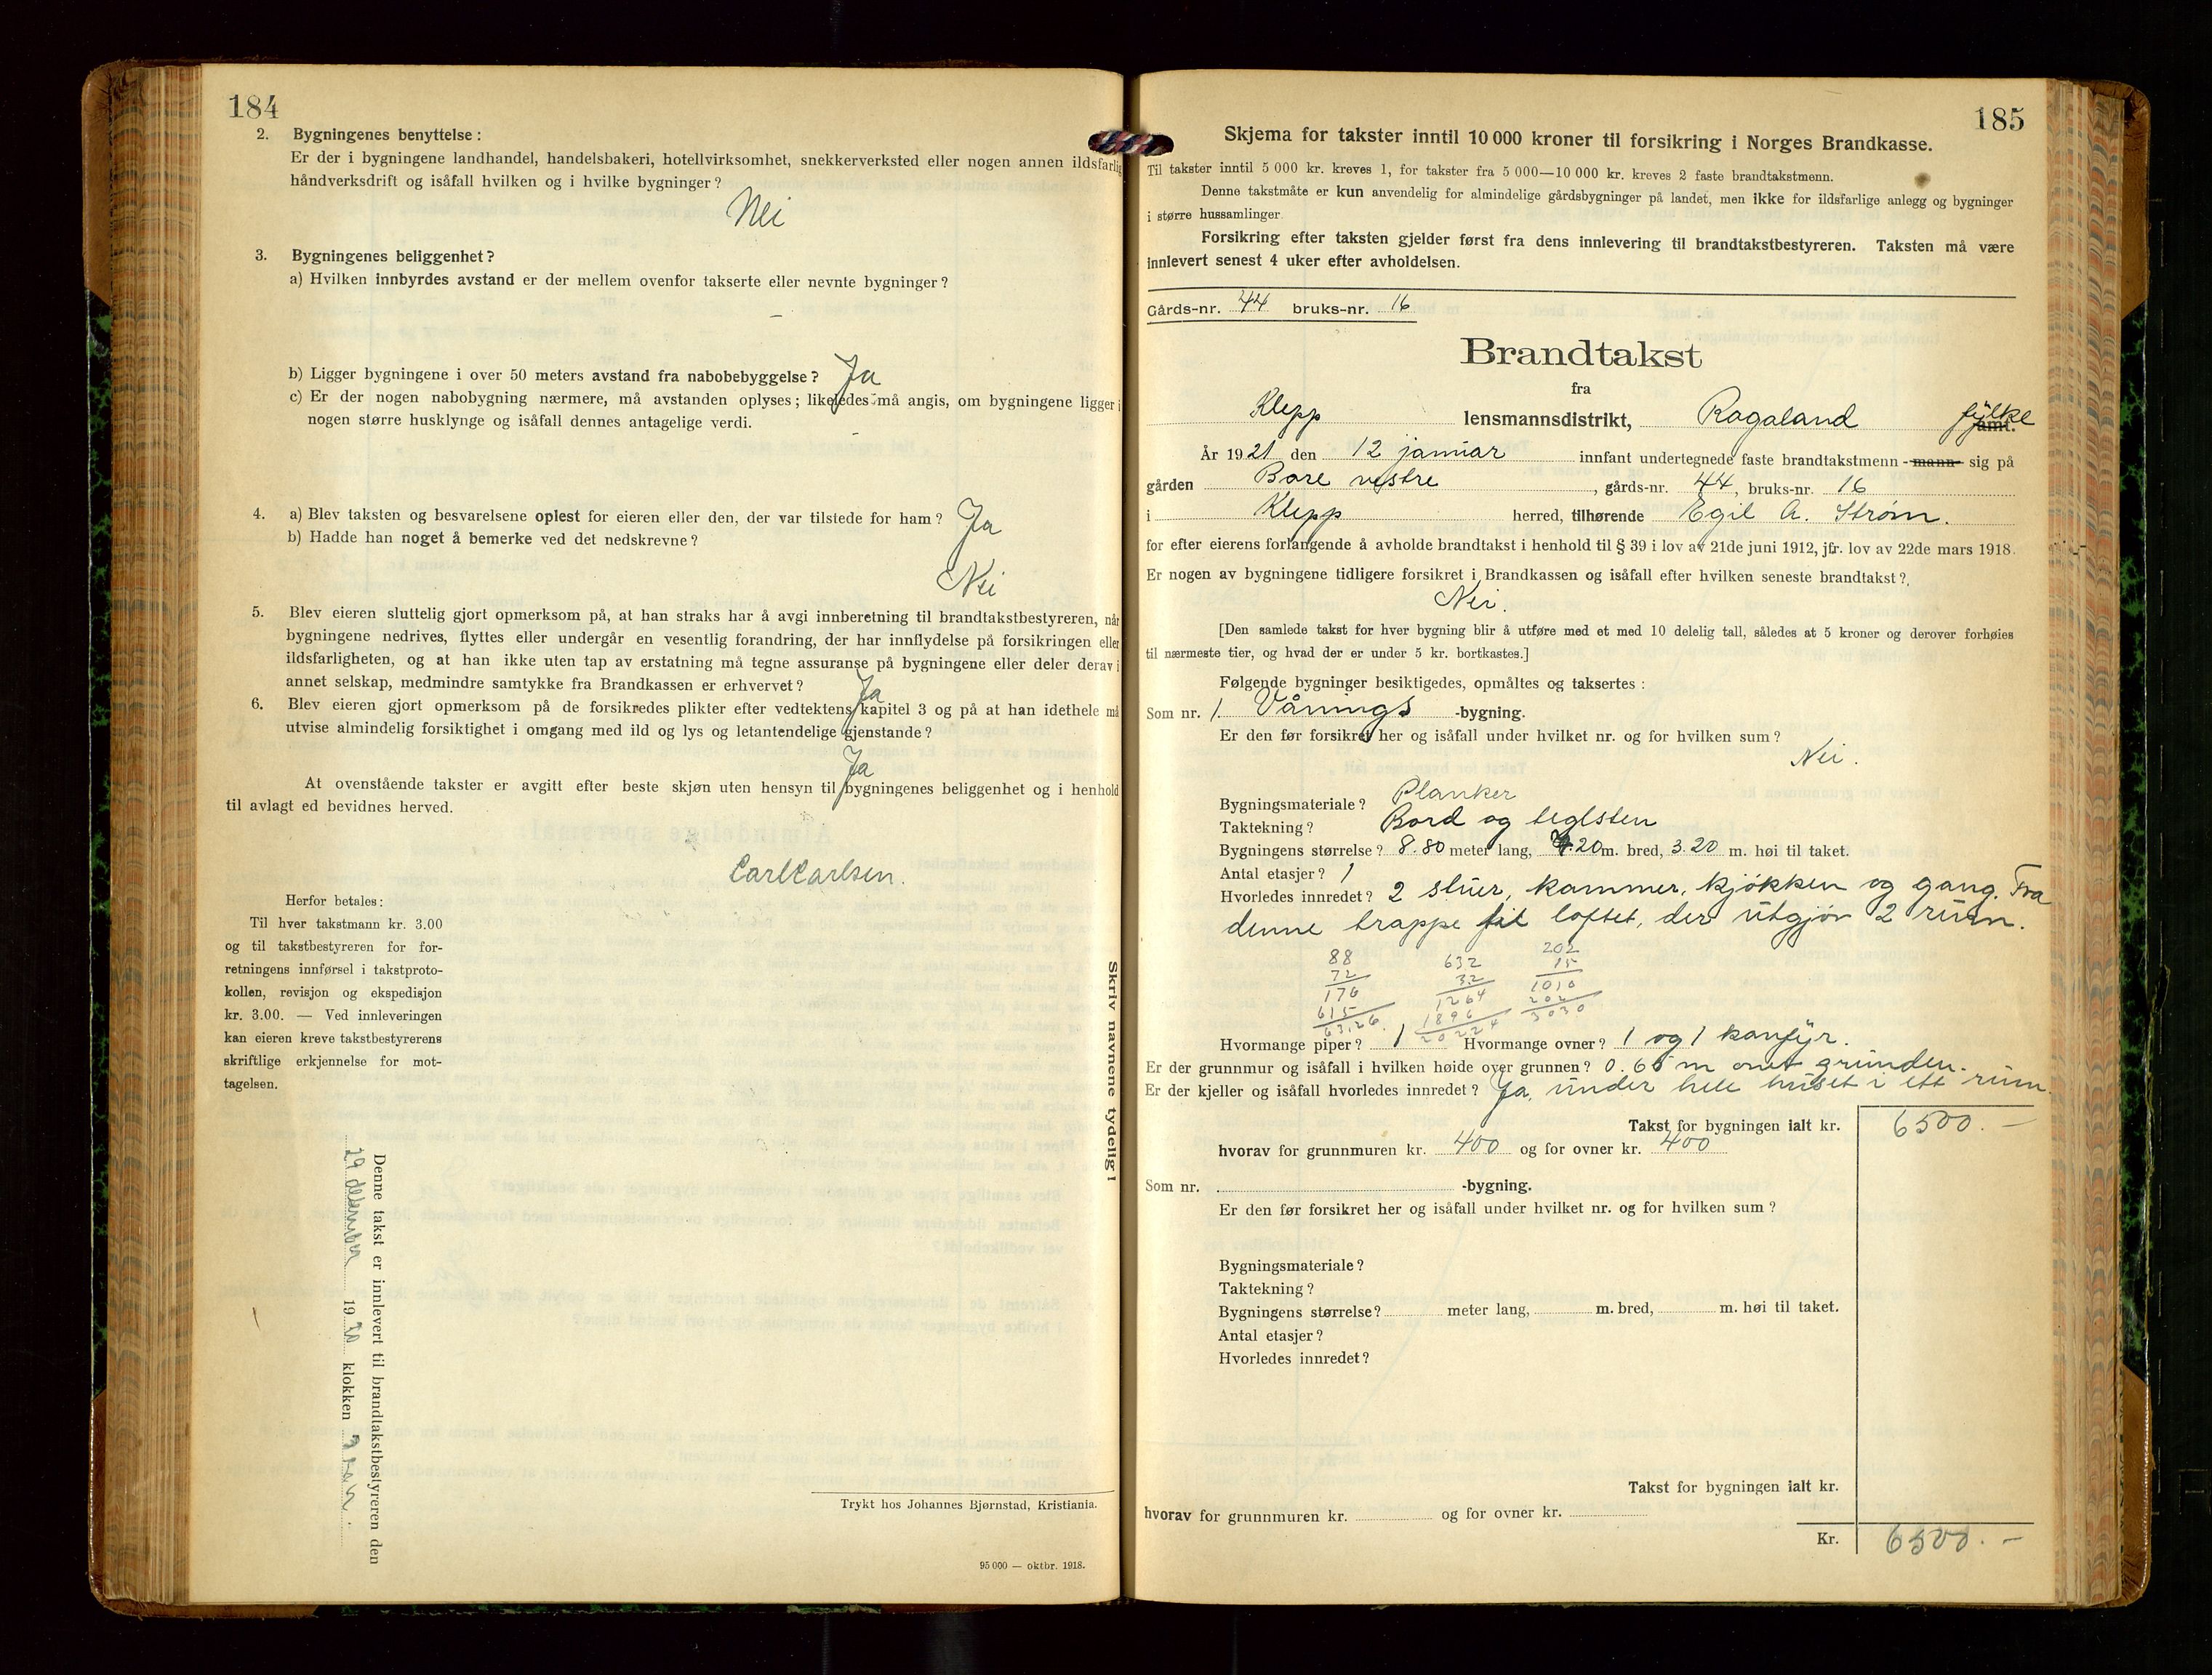 184
2. Bygningenes benyttelse :
Er der i bygningene landhandel, handelsbakeri, hotellvirksomhet, snekkerverksted eller nogen annen ildsfarlig
håndverksdrift og isåfall hvilken og i hvilke bygninger ?
Nei
3. Bygningenes beliggenhet ?
a) Hvilken innbyrdes avstand er der mellem ovenfor takserte eller nevnte bygninger ?
–
b) Ligger bygningene i over 50 meters avstand fra nabobebyggelse ? Ja
c) Er der nogen nabobygning nærmere, må avstanden oplyses ; likeledes må angis, om bygningene ligger i
nogen større husklynge og isåfall dennes antagelige verdi.
–
4. a) Blev taksten og besvarelsene oplest for eieren eller den, der var tilstede for ham ? Ja
b) Hadde han noget å bemerke ved det nedskrevne ?
Nei
5. Blev eieren sluttelig gjort opmerksom på, at han straks har å avgi innberetning til brandtakstbestyreren, når
bygningene nedrives, flyttes eller undergår en vesentlig forandring, der har innflydelse på forsikringen eller
ildsfarligheten, og at han ikke uten tap av erstatning må tegne assuranse på bygningene eller deler derav i
annet selskap, medmindre samtykke fra Brandkassen er erhvervet ? Ja
6. Blev eieren gjort opmerksom på de forsikredes plikter efter vedtektens kapitel 3 og på at han idethele må
utvise almindelig forsiktighet i omgang med ild og lys og letantendelige gjenstande ?
Ja
At ovenstående takster er avgitt efter beste skjøn uten hensyn til bygningenes beliggenhet og i henhold
til avlagt ed bevidnes herved.
Carl Carlsen.
Herfor betales :
Til hver takstmann kr. 3.00
og til takstbestyreren for for-
retningens innførsel i takstproto-
kollen, revisjon og ekspedisjon
kr. 3.00. — Ved innleveringen
kan eieren kreve takstbestyrerens
skriftlige erkjennelse for mot-
tagelsen.
Skriv navnene tydelig !
Denne takst er innlevert til brandtakstbestyreren den
29 desember 1920 klokken
Trykt hos Johannes Bjørnstad, Kristiania.
95 000 — oktbr. 1918.
185
Skjema for takster inntil 10 000 kroner til forsikring i Norges Brandkasse.
Til takster inntil 5 000 kr. kreves 1, for takster fra 5 000—10 000 kr. kreves 2 faste brandtakstmenn.
Denne takstmåte er kun anvendelig for almindelige gårdsbygninger på landet, men ikke for ildsfarlige anlegg og bygninger
i større hussamlinger.
Forsikring efter taksten gjelder først fra dens innlevering til brandtakstbestyreren. Taksten må være
innlevert senest 4 uker efter avholdelsen.
Gårds-nr. 44 bruks-nr. 16
Brandtakst
fra
Klepp lensmannsdistrikt, Rogaland fylke amt.
År 1921 den 12 januar innfant undertegnede faste brandtakstmenn - mann- sig på
gården Bore vestre, gårds-nr. 44, bruks-nr. 16
i Klepp herred, tilhørende Egil A. Strøm.
for efter eierens forlangende å avholde brandtakst i henhold til § 39 i lov av 21de juni 1912, jfr. lov av 22de mars 1918.
Er nogen av bygningene tidligere forsikret i Brandkassen og isåfall efter hvilken seneste brandtakst ?
Nei.
[Den samlede takst for hver bygning blir å utføre med et med 10 delelig tall, således at 5 kroner og derover forhøies
til nærmeste tier, og hvad der er under 5 kr. bortkastes.]
Følgende bygninger besiktigedes, opmåltes og taksertes :
Som nr. 1. Vånings -bygning.
Er den før forsikret her og isåfall under hvilket nr. og for hvilken sum ?
Nei.
Bygningsmateriale ? Planker
Taktekning ? Bord og teglsten
Bygningens størrelse ? 8.80 meter lang, 7.20 m. bred, 3.20 m. høi til taket.
Antal etasjer ? 1
Hvorledes innredet ? 2 stuer, kammer, kjøkken og gang. Fra
denne trappe til loftet, der utgjør 2 rum.
88 632 202
72 32 15
176 1264 1010
615 1896 202
63.26. 20224 3030
Hvormange piper ? 1 Hvormange ovner ? 1 og 1 komfyr.
Er der grunnmur og isåfall i hvilken høide over grunnen ? 0.65 m over grunden.
Er der kjeller og isåfall hvorledes innredet ? Ja, under hele huset i ett rum.
Takst for bygningen ialt kr. 6500.–
hvorav for grunnmuren kr. 400 og for ovner kr. 400
Som nr. -bygning.
Er den før forsikret her og isåfall under hvilket nr. og for hvilken sum ?
Bygningsmateriale ?
Taktekning ?
Bygningens størrelse ? meter lang, m. bred, m. høi til taket.
Antal etasjer ?
Hvorledes innredet ?
Takst for bygningen ialt kr.
hvorav for grunnmuren kr. og for ovner kr.
Kr. 6500.–